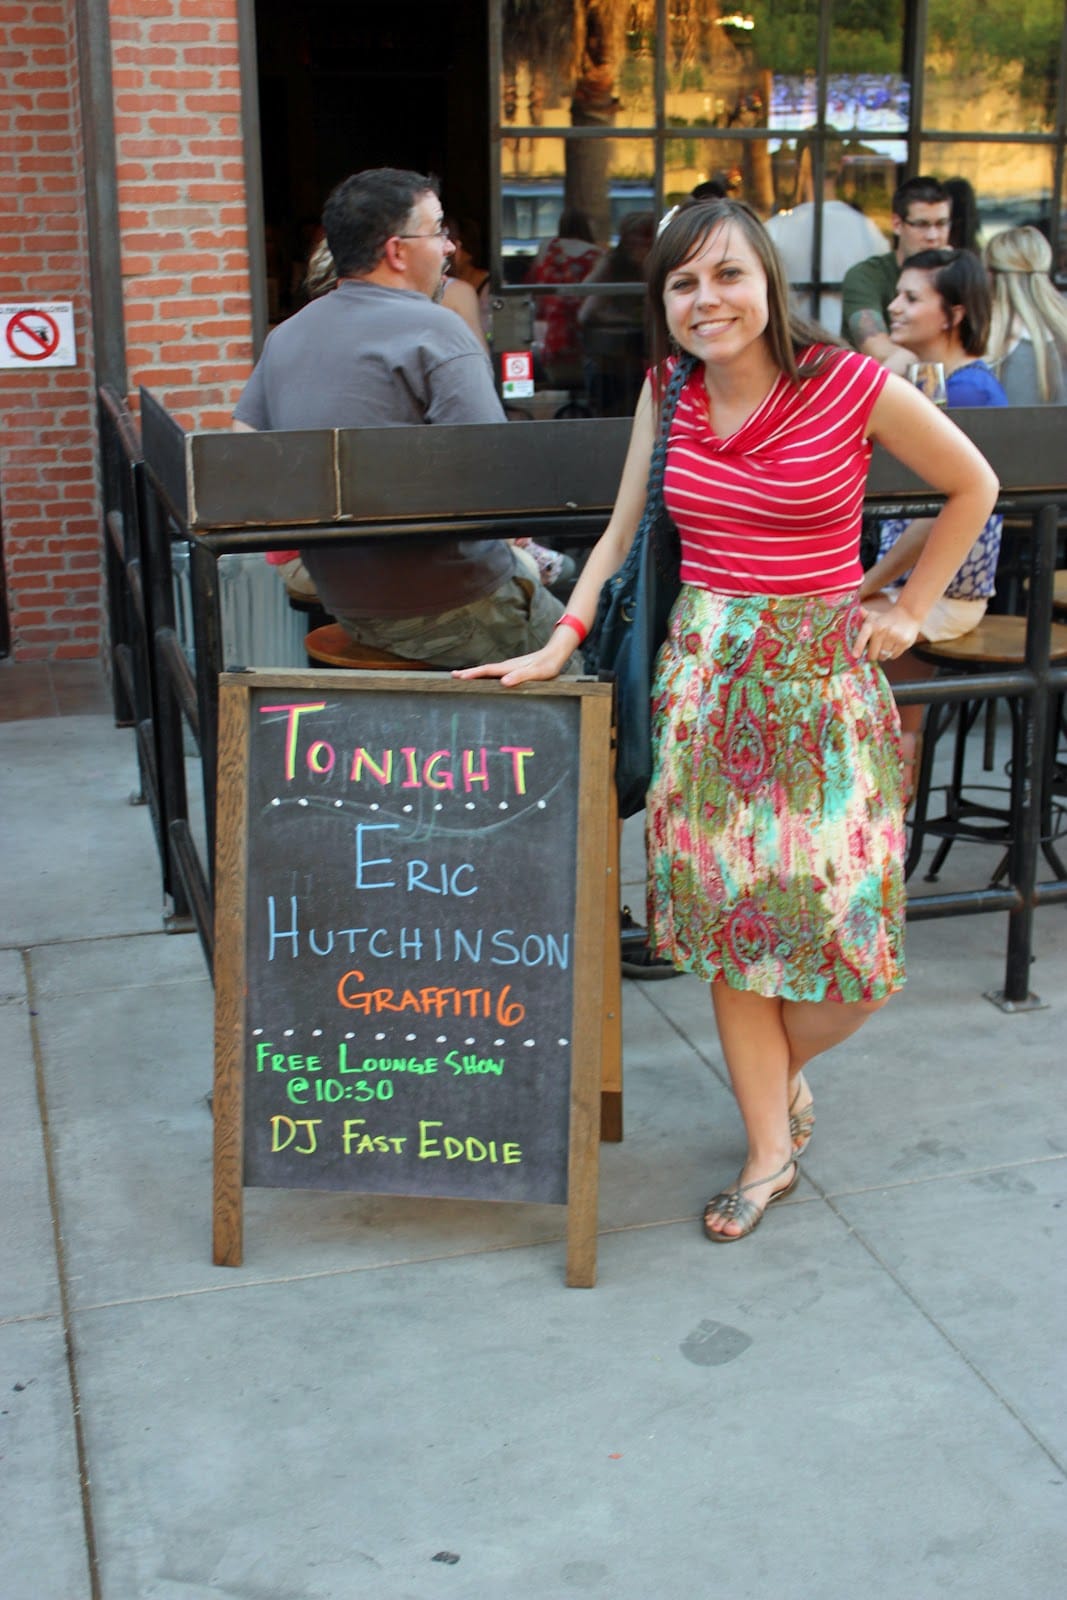 TONIGHT
ERIC
HUTCHINSON
GRAFFITI6
FREE LOUNGE SHOW
@10:30
DJ FAST EDDIE